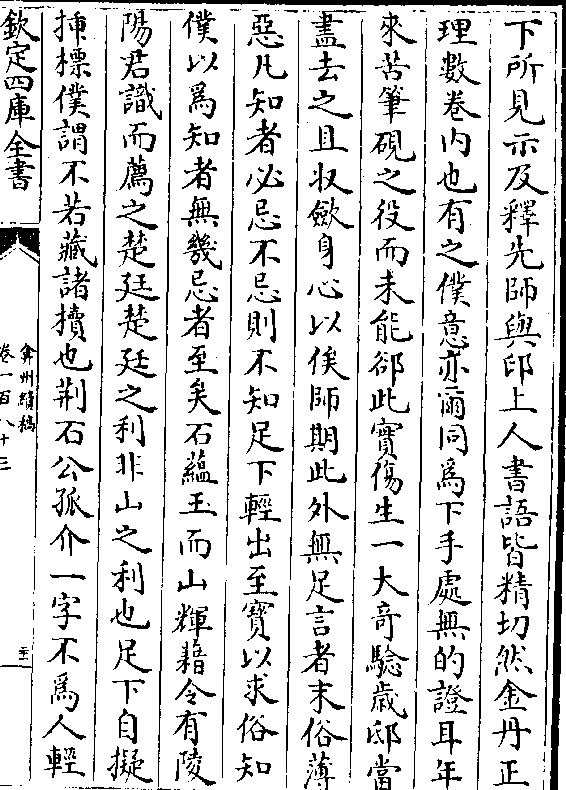 下所見示及釋先師與印上人書語皆精切然金丹正
理數卷内也有之僕意亦爾同為下手處無的證耳年
來苦筆硯之役而未能郤此實傷生一大竒驗歲邸當
盡去之且收斂身心以俟師期此外無足言者末俗薄
惡凡知者必忌不忌則不知足下輕出至寳以求俗知
僕以為知者無幾忌者至矣石藴玉而山輝藉令有陵
陽君識而薦之楚廷楚廷之利非山之利也足下自擬
揷標僕謂不若藏諸櫝也荆石公孤介一字不為人輕
欽定四庫全書
弇州續稿
卷一百八十三